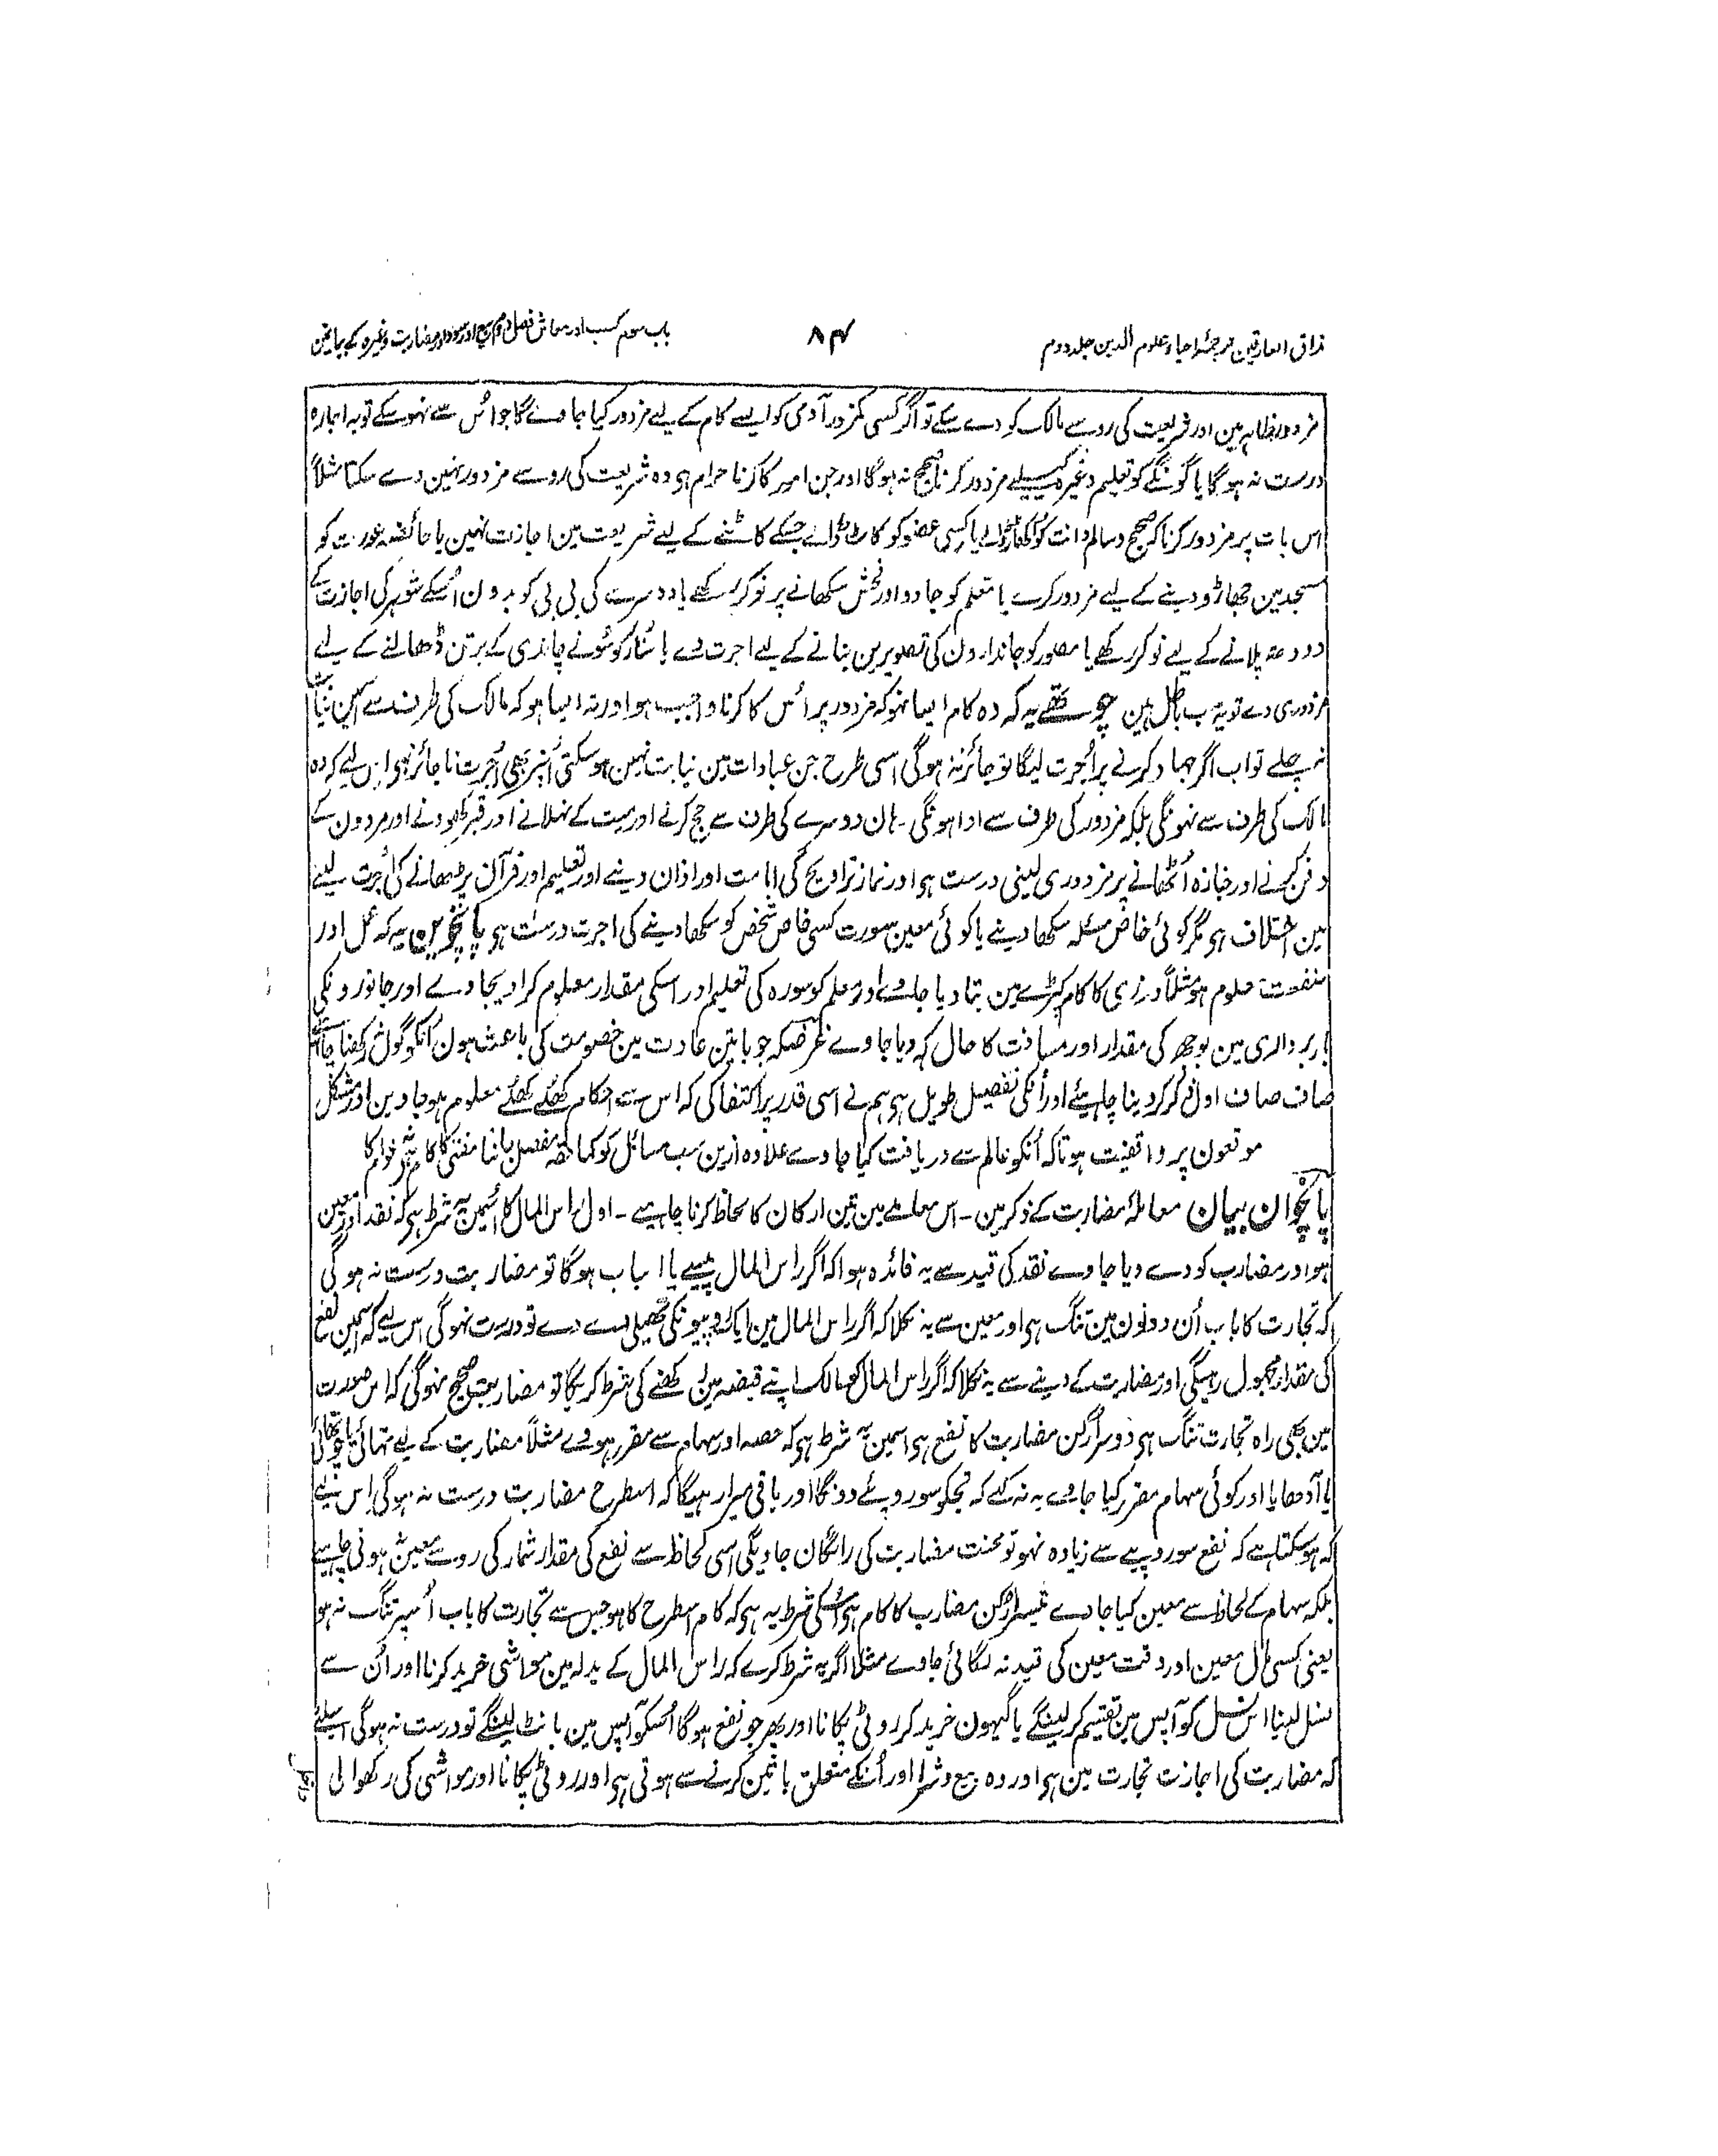 مذاق العارفین ترجمہ احیاء علوم الدین جلد دوم
۸۴
باب سوم کسب اور معاش فصل دوم بیع اور سود اور مضاربت وغیرہ کے بیانمین
مزدور ظاہر مین اور شریعت کی رو سے مالک کو دے سکے تو اگر کسی کمزور آدمی کو ایسے کام کے لیے مزدور کیا جاوے گا جو اُس سے نہوسکے تو یہ اجارہ
درست نہ ہوگا یا گونگے کو تعلیم وغیرہ کیلیے مزدور کرنا صحیح نہ ہوگا اور جن امور کا کرنا حرام ہی وہ شریعت کی رو سے مزدور نہین دے سکتا مثلاً
اس بات پر مزدور کرنا کہ صحیح وسالم دانت کو اُکھاڑ ڈالے یا کسی عضو کو کاٹ ڈالے جسکے کاٹنے کے لیے شریعت مین اجازت نہین یا حائضہ عورت کو
مسجد مین جھاڑو دینے کے لیے مزدور کرے یا معلم کو جادو اور فحش سکھانے پر نوکر رکھے یا دوسرے کی بی بی کو بدون اُسکے شوہر کی اجازت کے
دودھ پلانے کے لیے نوکر رکھے یا مصور کو جاندارون کی تصویرین بنانے کے لیے اجرت دے یا سُنار کو سونے چاندی کے برتن ڈھالنے کے لیے
مزدوری دے تو یہ سب باطل ہین چوتھے یہ کہ وہ کام ایسا نہو کہ مزدور پر اُس کا کرنا واجب ہو اور نہ ایسا ہو کہ مالک کی طرف سے اسمین نیابت
نہ چلے تو اب اگر جہاد کرنے پر اُجرت لیگا تو جائز نہ ہوگی اسی طرح جن عبادات مین نیابت نہین ہوسکتی اُنپر بھی اُجرت ناجائز ہی اس لیے کہ وہ
مالک کی طرف سے نہونگی بلکہ مزدور کی طرف سے ادا ہونگی ۔ ہان دوسرے کی طرف سے حج کرنے اور میت کے نہلانے اور قبر کھودنے اور مردون کے
دفن کرنے اور جنازہ اُٹھانے پر مزدوری لینی درست ہی اور نماز تراویح کی امامت اور اذان دینے اور تعلیم اور قرآن پڑھانے کی اُجرت لینے
مین اختلاف ہی مگر کوئی خاص مسئلہ سکھا دینے یا کوئی معین سورت کسی خاص شخص کو سکھا دینے کی اجرت درست ہی پانچوین یہ کہ عمل اور
منفعت معلوم ہو مثلاً درزی کا کام کپڑے مین بتا دیا جاوے اور معلم کو سورہ کی تعلیم اور اسکی مقدار معلوم کرا دیجاوے اور جانورونکی
باربرداری مین بوجھ کی مقدار اور مسافت کا حال کہدیا جاوے غرضکہ جو باتین عادت مین خصومت کی باعث ہون اُنکو گول رکھنا نچاہیے
صاف صاف اول ذکر کردینا چاہیئے اور اُنکی تفصیل طویل ہی ہم نے اسی قدر پر اکتفا کی کہ اس سے احکام کھلے کھلے معلوم ہو جاوین اور مشکل
موقعون پر واقفیت ہو تاکہ اُنکو عالم سے دریافت کیا جاوے علاوہ ازین سب مسائل کو کما حقہ مفصل جاننا مفتی کا کام ہی نہ عوام کا
پانچوان بیان معاملۂ مضاربت کے ذکر مین ۔ اس معاملے مین تین ارکان کا لحاظ کرنا چاہیے ۔ اول راس المال کا اُسمین یہ شرط ہی کہ نقد اور معین
ہو اور مضارب کو دے دیا جاوے نقد کی قید سے یہ فائدہ ہوا کہ اگر راس المال پیسے یا اسباب ہوگا تو مضاربت درست نہ ہوگی
کہ تجارت کا باب اُن دونون مین تنگ ہی اور معین سے یہ نکلا کہ اگر راس المال مین ایک روپیونکی تھیلی دے دے تو درست نہوگی اس لیے کہ اسمین نفع
کی مقدار مجہول رہیگی اور مضارب کے دینے سے یہ نکلا کہ اگر راس المال کو مالک اپنے قبضہ مین رکھنے کی شرط کریگا تو مضاربت صحیح نہوگی کہ اس صورت
مین بھی راہ تجارت تنگ ہی دوسرا رکن مضاربت کا نفع ہی اسمین یہ شرط ہی کہ حصہ اور سہام سے مقرر ہووے مثلاً مضارب کے لیے تہائی یا چوتھائی
یا آدھا یا اور کوئی سہام مقرر کیا جاوے یہ نہ کہے کہ تجکو سو روپیئے دونگا اور باقی میرا رہیگا کہ اسطرح مضاربت درست نہ ہوگی اس لیے
کہ ہوسکتا ہے کہ نفع سو روپیے سے زیادہ نہو تو محنت مضارب کی رائگان جاویگی اسی لحاظ سے نفع کی مقدار شمار کی رو سے معین نہونی چاہیے
بلکہ سہام کے لحاظ سے معین کیا جاوے تیسرا رکن مضارب کا کام ہی اُسکی شرط یہ ہی کہ کام اسطرح کا ہو جس سے تجارت کا باب اُسپر تنگ نہ ہو
یعنی کسی مال معین اور وقت معین کی قید نہ لگائی جاوے مثلاً اگر یہ شرط کرے کہ راس المال کے بدلہ مین مواشی خرید کرنا اور اُن سے
نسل لینا اس نسل کو آپس مین تقسیم کرلینگے یا گیہون خرید کر روٹی پکانا اور پھر جو نفع ہوگا اُسکو آپس مین بانٹ لینگے تو درست نہ ہوگی اسلیے
کہ مضاربت کی اجازت تجارت مین ہی اور وہ بیع وشرا اور اُنکے متعلق باتین کرنے سے ہوتی ہی اور روٹی پکانا اور مواشی کی رکھوالی